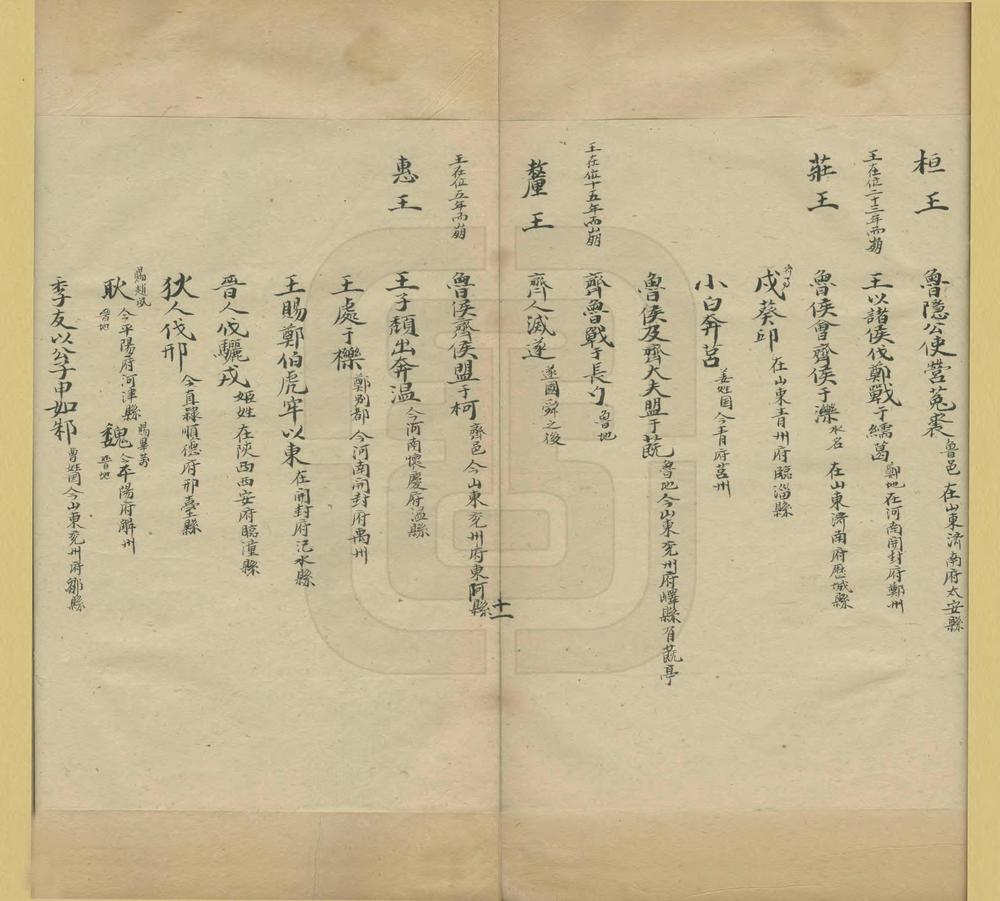 桓王　魯隱公使營菟裘 魯邑 在山東濟南府太安縣
王在位二十三年而崩　王以諸侯伐鄭戰于繻葛 鄭地在河南開封府鄭州
莊王　魯侯會齊侯于濼 水名 在山東濟南府歷城縣
戍葵邱 在山東青州府臨淄縣
小白奔莒 姜姓国今青府莒州
魯侯及齊大夫盟于蔇 魯地今山東兖州府嶧縣有蔇亭
王在位十五年而崩　齊魯戰于長勺 魯地
釐王　齊人滅遂 遂國舜之後
王在位五年而崩　魯侯齊侯盟于柯 齊邑今山東兖州府東阿縣
十一
惠王　王子頹出奔温 今河南懷慶府温縣
王處于櫟 鄭別都今河南開封府禹州
王賜鄭伯虎牢以東 在開封府汜水縣
晉人伐驪戎 姬姓在陝西西安府臨潼縣
狄人伐邢 今直隸順德府邢臺縣
賜趙夙 耿 晉地 今平陽府河津縣 賜畢萬 魏 晉地 今平陽府解州
季友以公子申如邾 曹姓国今山東兖州府鄒縣